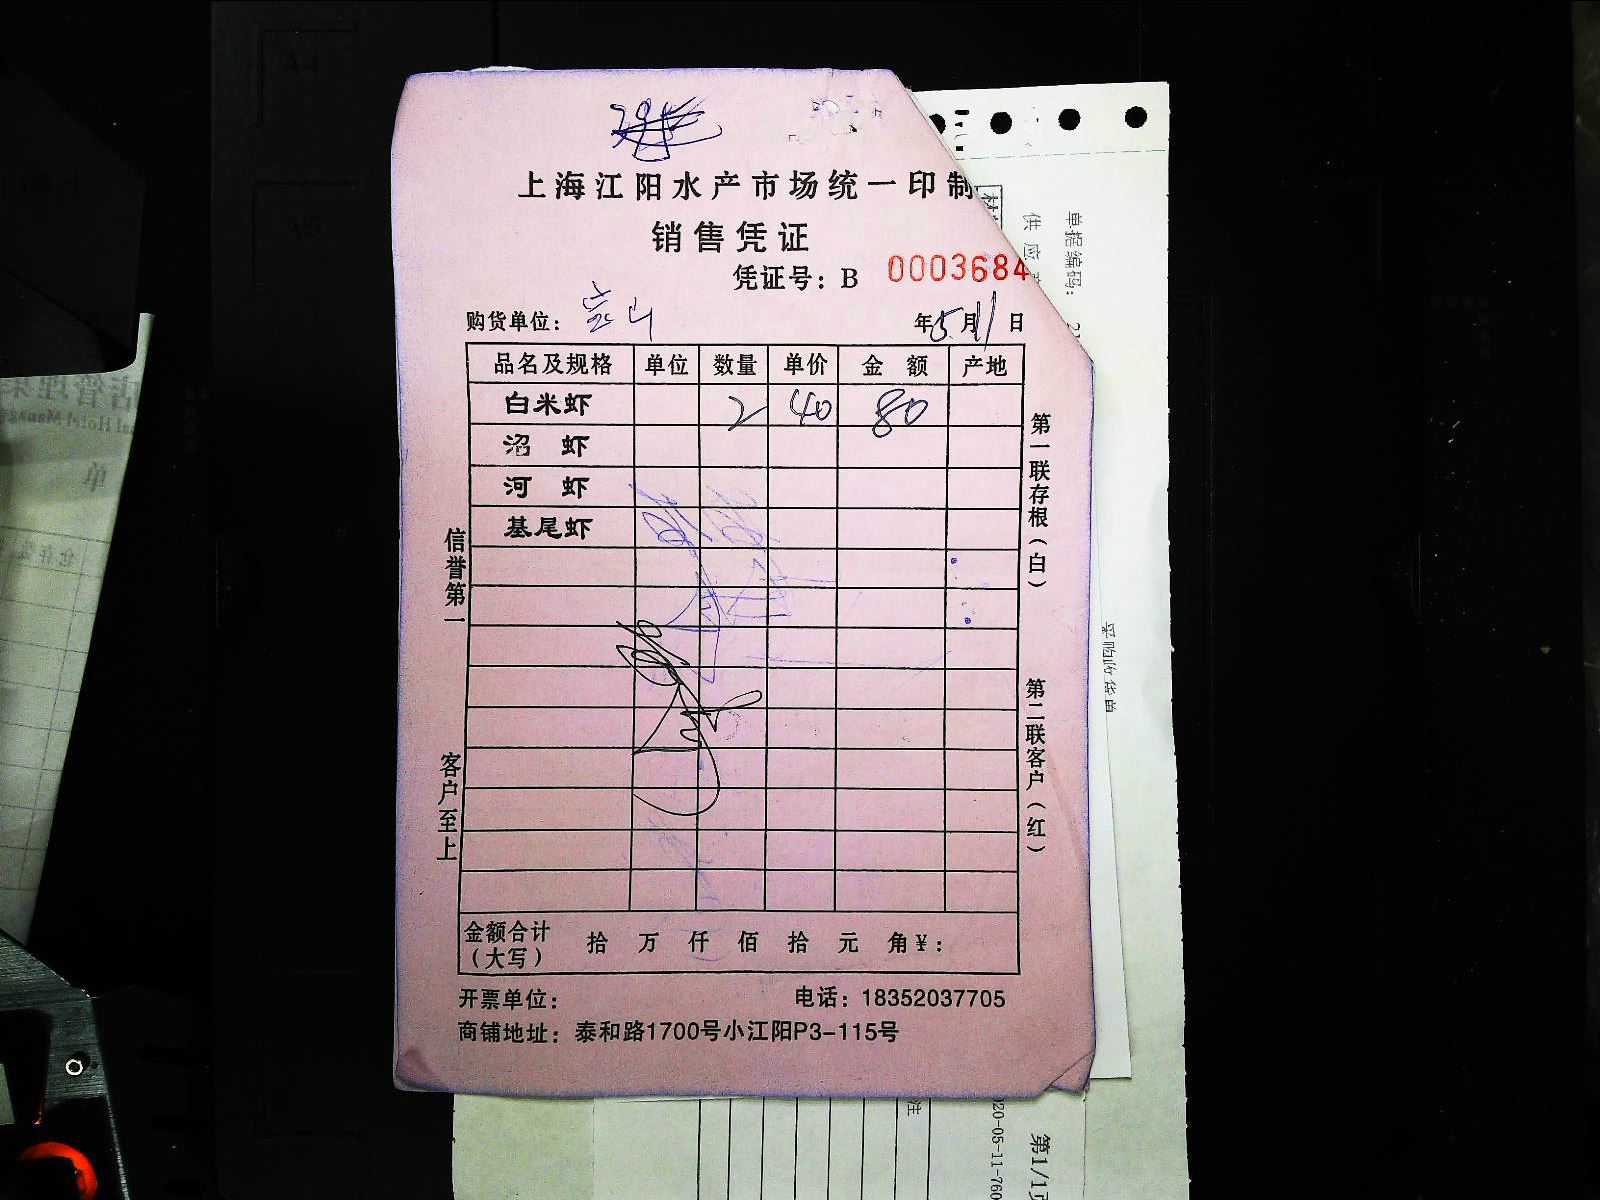 上海江阳水产市场统一印制
销售凭证
凭证号：B 0003684
购货单位： 年5月11日
品名及规格 单位 数量 单价 金额 产地
白米虾 2 40 80
沼虾
河虾
基尾虾
信誉第一
客户至上
第一联存根（白）
第二联客户（红）
金额合计（大写） 拾 万 仟 佰 拾 元 角 ¥：
开票单位： 电话：18352037705
商铺地址：泰和路1700号小江阳P3-115号
单据编码：
供应
采购收货单
第1/1页
020-05-11-760
注